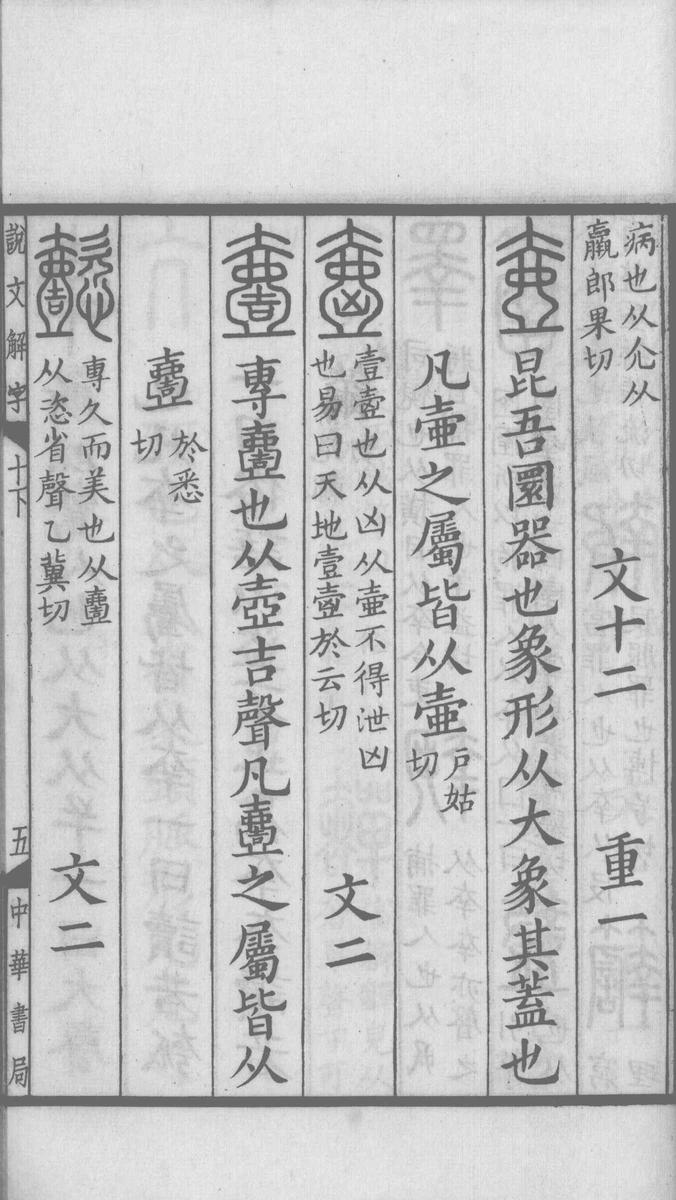 病也从尣从
羸郎果切
文十二
重一
昆吾圜器也象形从大象其蓋也
凡壷之屬皆从壷
戸姑
切
壹壺也从凶从壷不得泄凶
也易曰天地壹壺於云切
文二
專壹也从壺吉聲凡壹之屬皆从
壹
於悉
切
專久而美也从壹
从恣省聲乙冀切
文二
說文解字
十下
五
中華書局